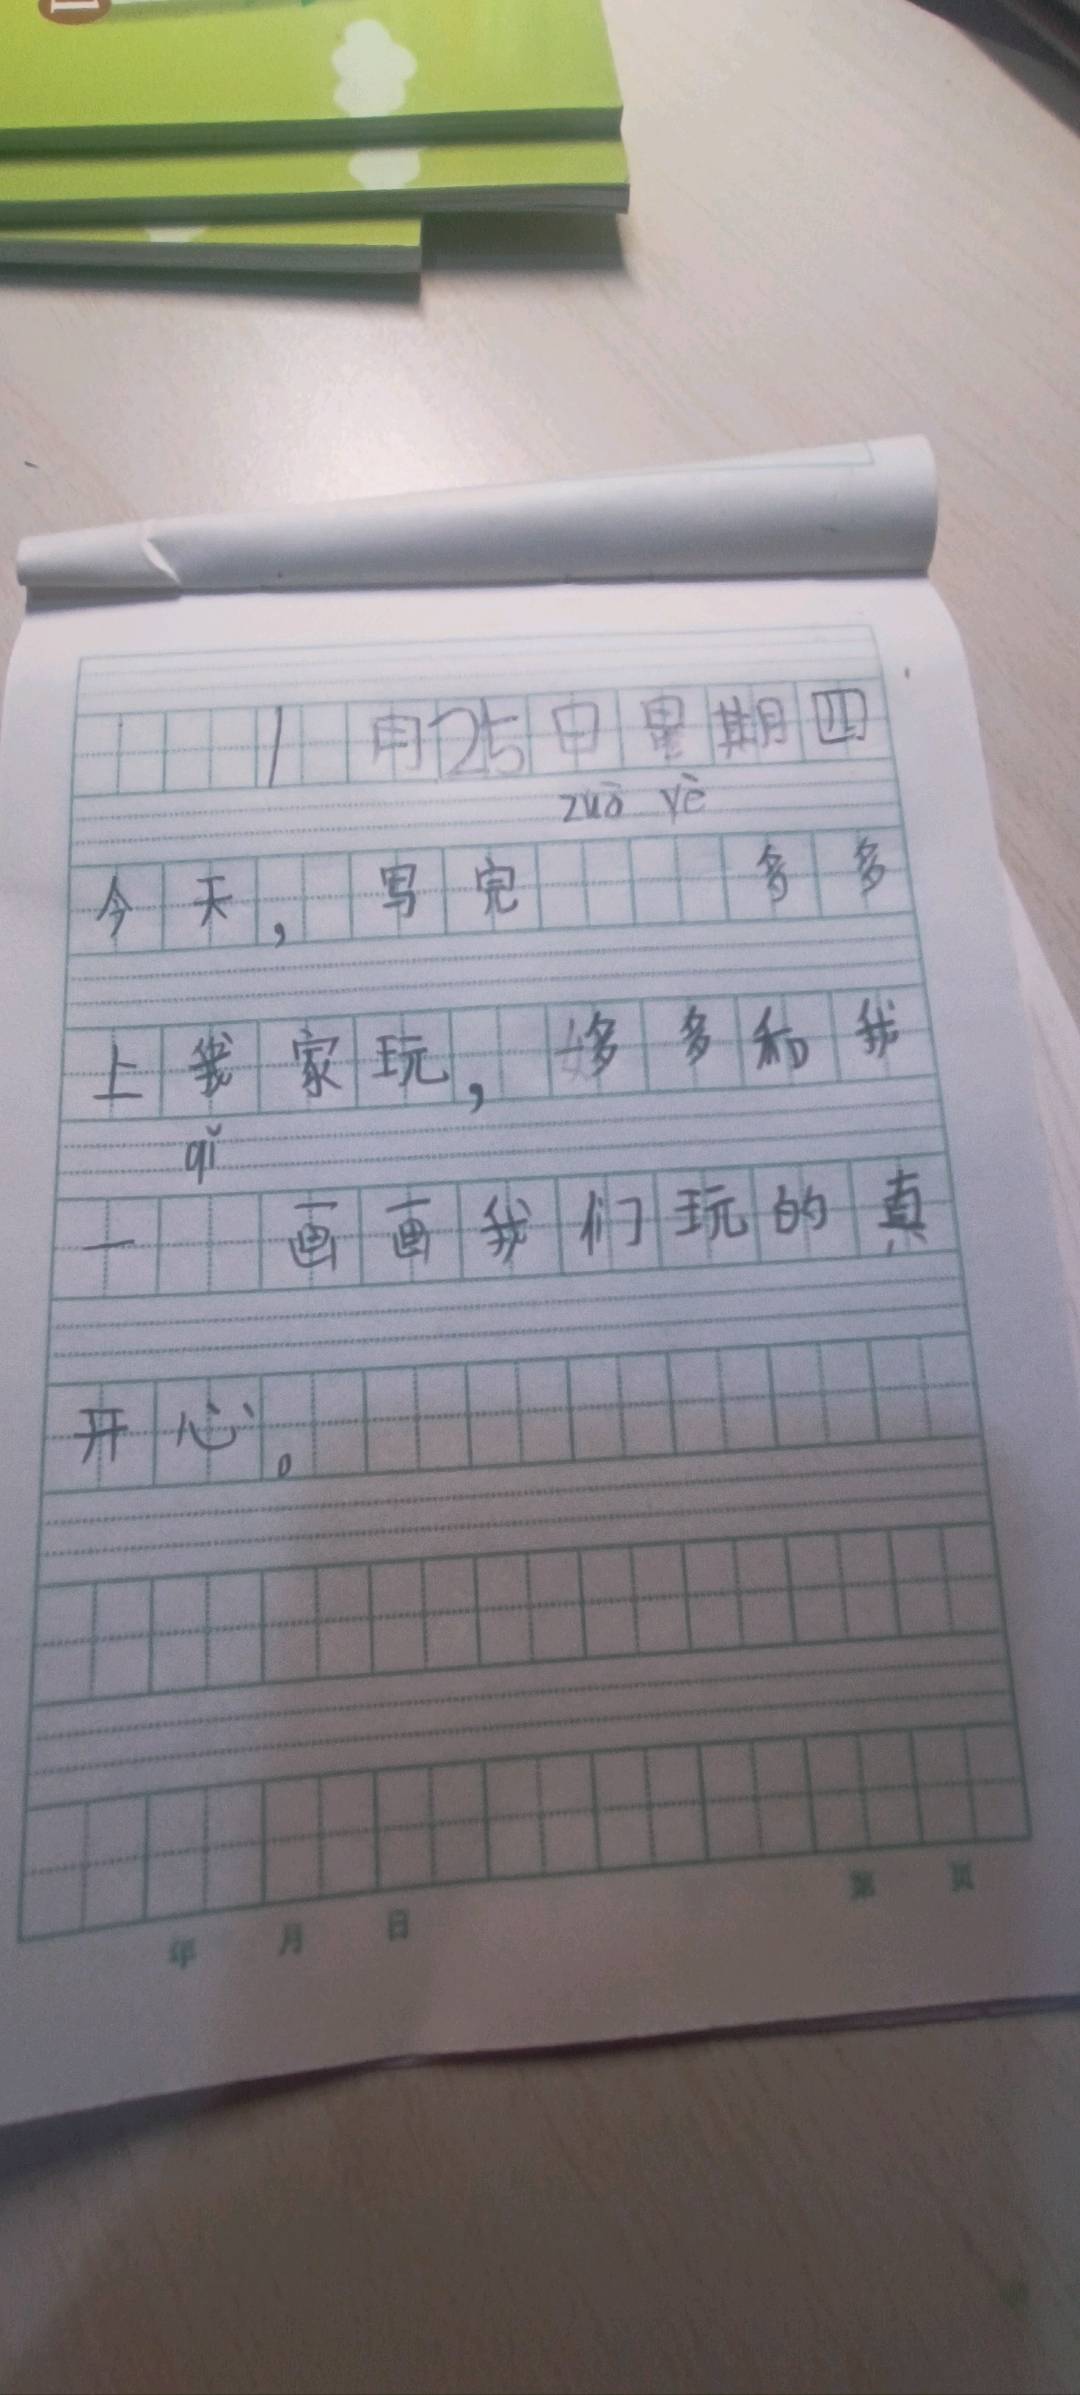 1月25日星期四
zuò yè
今天，写完 多多
上我家玩，多多和我
qǐ
一 画画我们玩的真
开心。
年 月 日 第 页